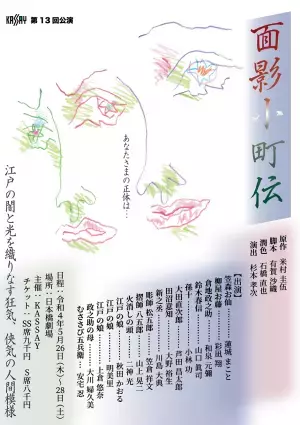 KASSAY 第13回公演
面影小町伝
原作 米村圭伍
脚本 有賀沙織
潤色 石橋直也
演出 杉本孝次
あなたさまの正体は…
【出演】
笠森お仙… 蓮城まこと
柳屋お藤… 彩凪翔
倉地政之助… 和泉元彌
鈴木春信… 山口眞司
孫十… 小林功
大田直次郎… 芦田昌太郎
田沼意知… 大野裕生
新之丞… 川島大典
彫師 松五郎… 笠倉祥文
摺師 八五郎… 山上晃二
火消しの頭… 二神光
江戸の娘… 秋田かおる
江戸の娘… 明美里
江戸の娘… 上倉悠奈
政之助の母… 大川婦久美
むささび五兵衛… 安宅忍
日程：令和4年5月26日(木)～28日(土)
場所：日本橋劇場
主催：KASSAY
チケット：SS席九千円 S席八千円
江戸の闇と光を織りなす狂気、侠気の人間模様